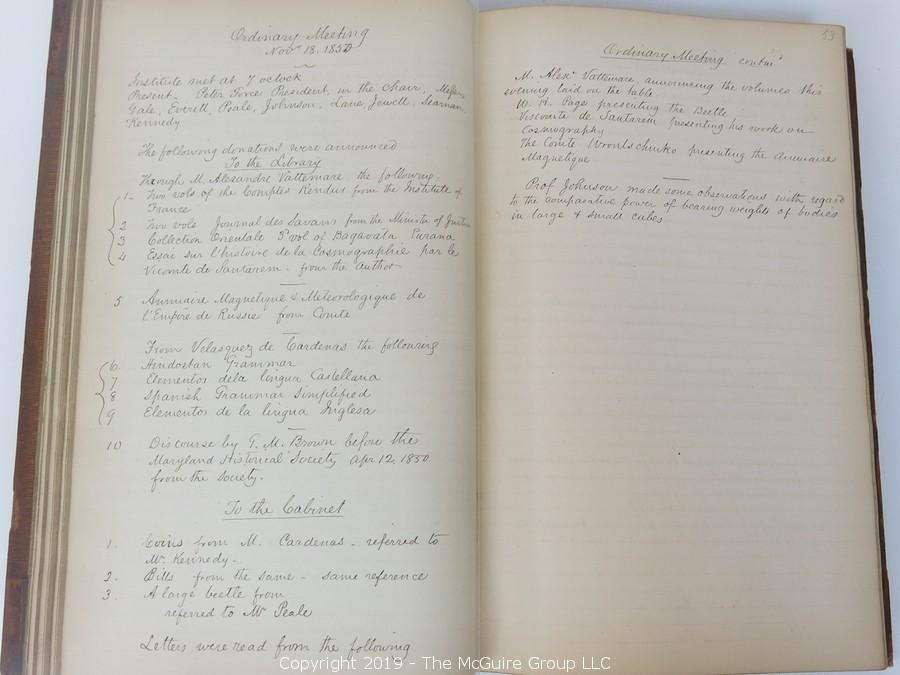 Ordinary Meeting
Novr 18. 1850
Institute met at 7 oclock
Present. Peter Force President, in the chair, Messrs
Gale, Everett, Peale, Johnson, Lane, Jewett, Seaman
Kennedy
The following donations were announced
To the Library
Through M. Alexandre Vattemare the following.
1 - Two vols of the Comptes Rendus from the Institute of
France
2 Two vols Journal des Savans from the Minister of Justice
3 Collection Orientale 3d vol of Bagavata Purana
4 Essai sur l'histoire de la Cosmographie par le
Vicomte de Santarem - from the author
5 Annuaire Magnetique & Meteorologique de
l'Empire de Russie from Comte
From Velasquez de Cardenas the following
6. Hindostan Grammar
7 Elementos dela lingua Castellana
8 Spanish Grammar Simplified
9 Elementos de la lingua Inglesa
10 Discourse by G. M. Brown before the
Maryland Historical Society Apr. 12. 1850.
from the Society.
To the Cabinet
1. Coins from M. Cardenas - referred to
Mr. Kennedy -
2. Bills from the same - same reference
3. A large beetle from
referred to Mr Peale
Letters were read from the following
53
Ordinary Meeting contind
M. Alexr Vattemare, announcing the volumes this
evening laid on the table
W. H. Page presenting the Beetle
Viscomte de Santarem presenting his work on
Cosmography
The Comte presenting the Annuaire
Magnetique
Prof Johnson made some observations with regard
to the comparative power of bearing weights of bodies
in large & small cubes
Copyright 2019 - The McGuire Group LLC